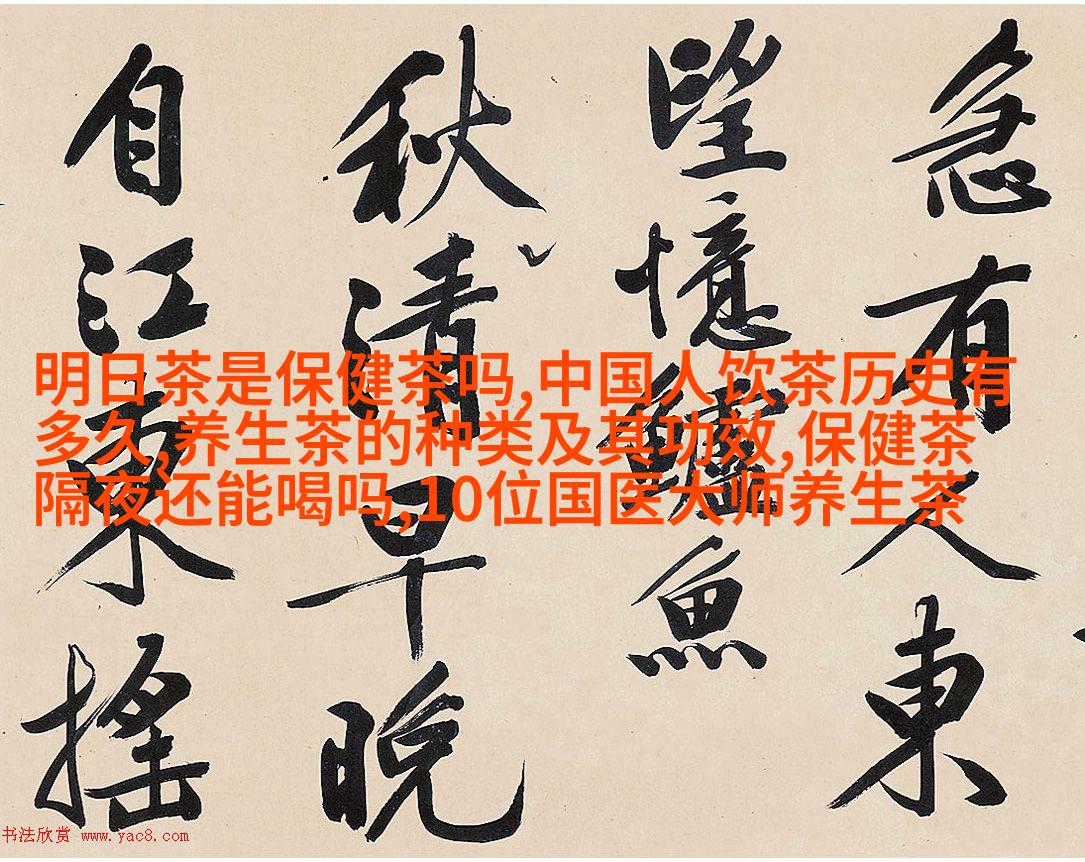 急有人東
望憶鱸魚
秋清早晚
自江東搖
明日茶是保健茶吗,中国人饮茶历史有
多久,养生茶的种类及其功效,保健茶
隔夜还能喝吗,10位国医大师养生茶
书法欣赏 www.yac8.com